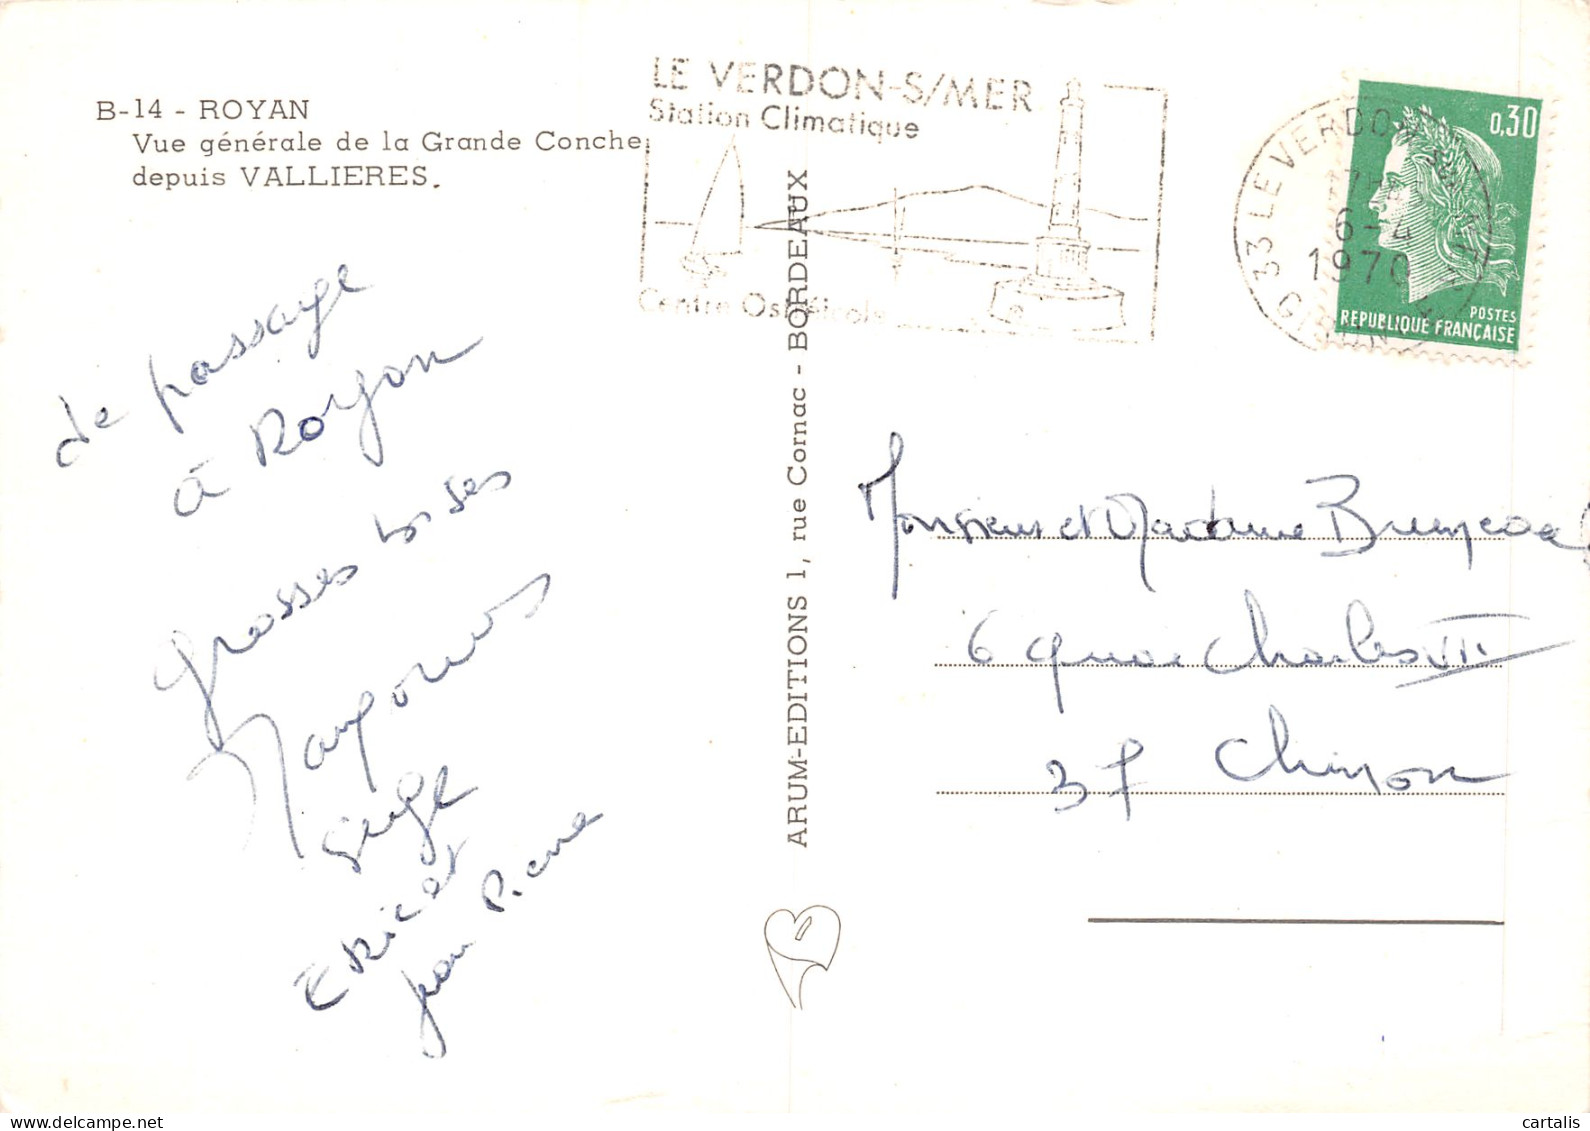 B-14 - ROYAN
Vue générale de la Grande Conche,
depuis VALLIERES.
LE VERDON-S/MER
Station Climatique
Centre Ostréicole
33 LE VERDON
6-4
1970
0,30
POSTES
REPUBLIQUE FRANÇAISE
de passage
à Royan
grosses bises
Serge
ERIC et
Jean Pierre
ARUM-EDITIONS 1, rue Cornac - BORDEAUX
Monsieur et Madame
6 quai Charles VII
37 Chinon
cartalis